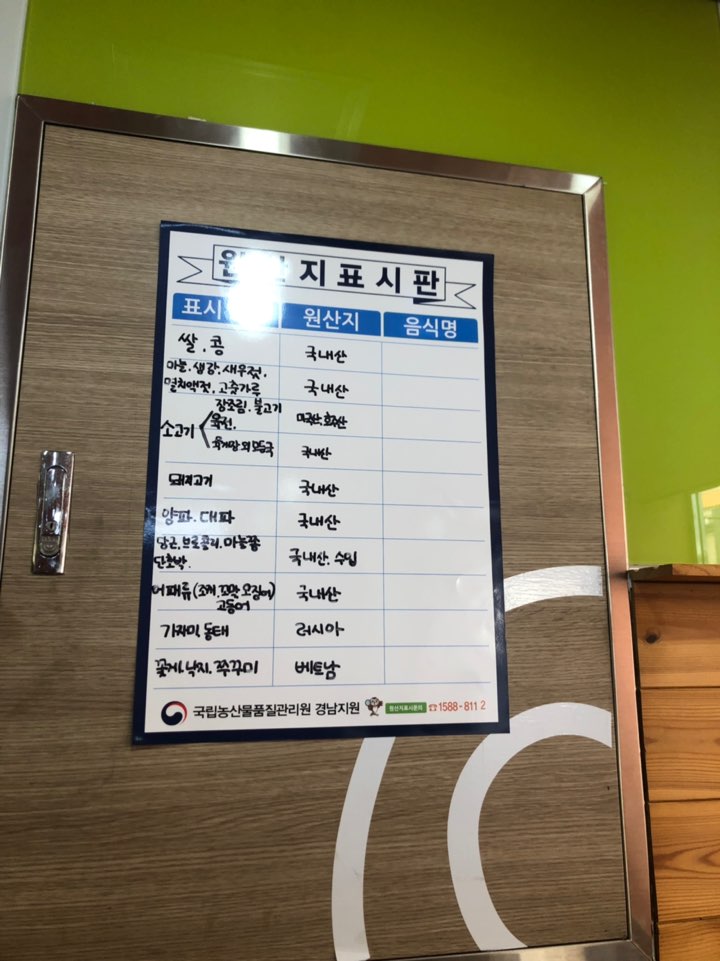 원산지표시판
표시 원산지 음식명
쌀.콩 국내산
마늘.생강.새우젓.
멸치액젓.고춧가루 국내산
장조림.불고기
소고기 육전. 미국산.호주산
육개장 외 모든국 국내산
돼지고기 국내산
양파.대파 국내산
당근.브로콜리.마늘쫑
단호박. 국내산.수입
어패류(조개.꼬막.오징어) 국내산
고등어
가자미.동태 러시아
꽃게.낙지.쭈꾸미 베트남
국립농산물품질관리원 경남지원 원산지표시문의 ☎1588-8112